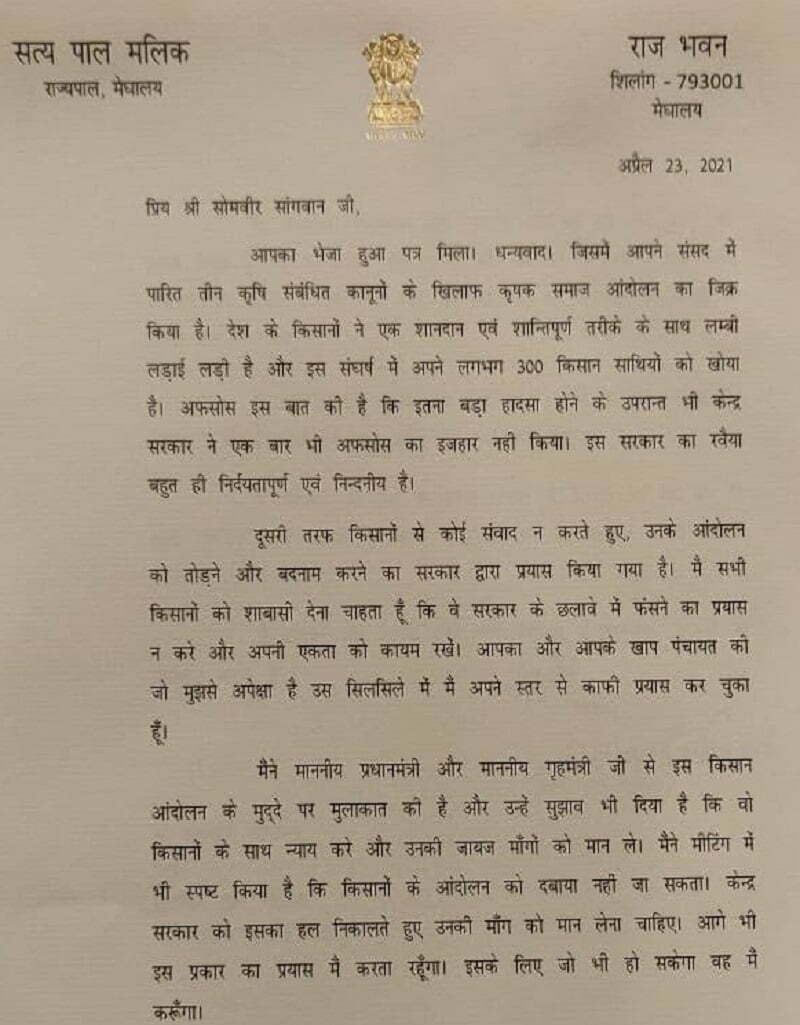 सत्य पाल मलिक
राज्यपाल, मेघालय
राज भवन
शिलांग - 793001
मेघालय
अप्रैल 23, 2021
प्रिय श्री सोमवीर सांगवान जी,
आपका भेजा हुआ पत्र मिला। धन्यवाद। जिसमें आपने संसद में
पारित तीन कृषि संबंधित कानूनों के खिलाफ कृषक समाज आंदोलन का जिक्र
किया है। देश के किसानों ने एक शानदान एवं शान्तिपूर्ण तरीके के साथ लम्बी
लड़ाई लड़ी है और इस संघर्ष में अपने लगभग 300 किसान साथियों को खोया
है। अफसोस इस बात की है कि इतना बड़ा हादसा होने के उपरान्त भी केन्द्र
सरकार ने एक बार भी अफसोस का इजहार नही किया। इस सरकार का रवैया
बहुत ही निर्दयतापूर्ण एवं निन्दनीय है।
दूसरी तरफ किसानों से कोई संवाद न करते हुए, उनके आंदोलन
को तोड़ने और बदनाम करने का सरकार द्वारा प्रयास किया गया है। मै सभी
किसानों को शाबासी देना चाहता हूँ कि वे सरकार के छलावे में फंसने का प्रयास
न करे और अपनी एकता को कायम रखें। आपका और आपके खाप पंचायत की
जो मुझसे अपेक्षा है उस सिलसिले में मै अपने स्तर से काफी प्रयास कर चुका
हूँ।
मैने माननीय प्रधानमंत्री और माननीय गृहमंत्री जी से इस किसान
आंदोलन के मुद्दे पर मुलाकात की है और उन्हें सुझाव भी दिया है कि वो
किसानों के साथ न्याय करे और उनकी जायज माँगों को मान ले। मैने मीटिंग में
भी स्पष्ट किया है कि किसानों के आंदोलन को दबाया नही जा सकता। केन्द्र
सरकार को इसका हल निकालते हुए उनकी माँग को मान लेना चाहिए। आगे भी
इस प्रकार का प्रयास मै करता रहूँगा। इसके लिए जो भी हो सकेगा वह मै
करूँगा।